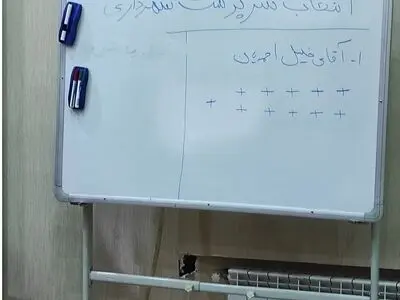 انتخاب سرپرست شهرداری
۱- آقای خلیل احمدیان
+ + + + +
+
+ + + + +